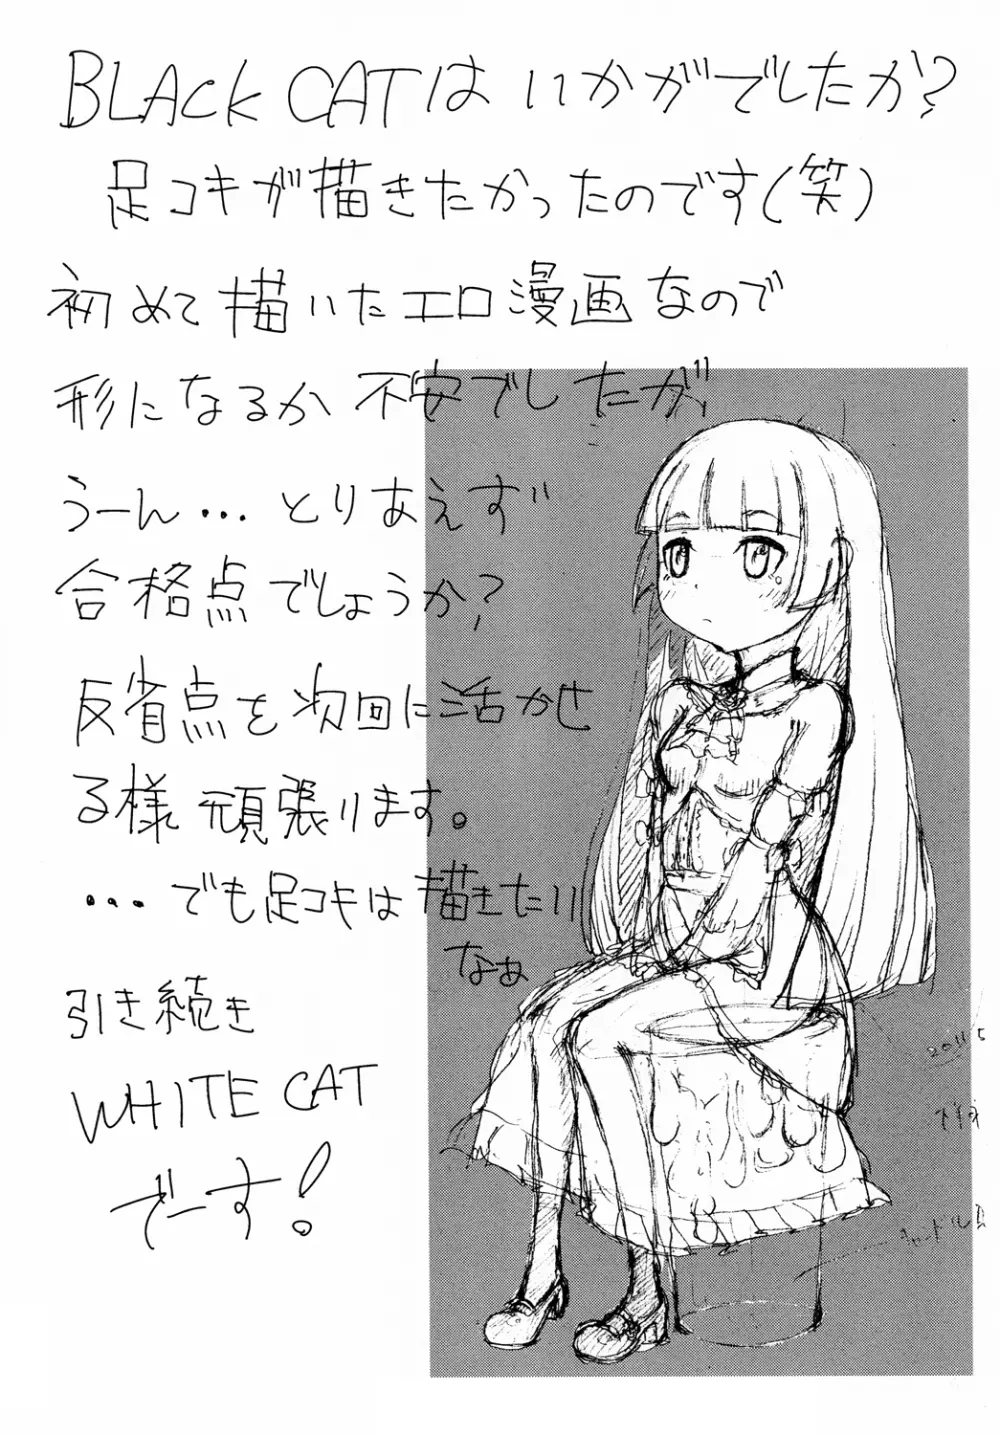 BLACK CATは いかがでしたか?
足コキが描きたかったのです(笑)
初めて描いたエロ漫画なので
形になるか 不安でしたが
うーん… とりあえず
合格点でしょうか?
反省点を次回に活かせ
る様 頑張ります。
…でも足コキは描きたい
なぁ
引き続き
WHITE CAT
でーす!